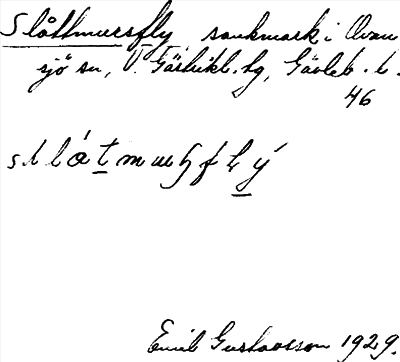 Slåttmursfly, sankmark i Ovan
sjö sn, V. Gästrikl. hg, Gävleb. l.
46
Emil Gustavsson 1929.